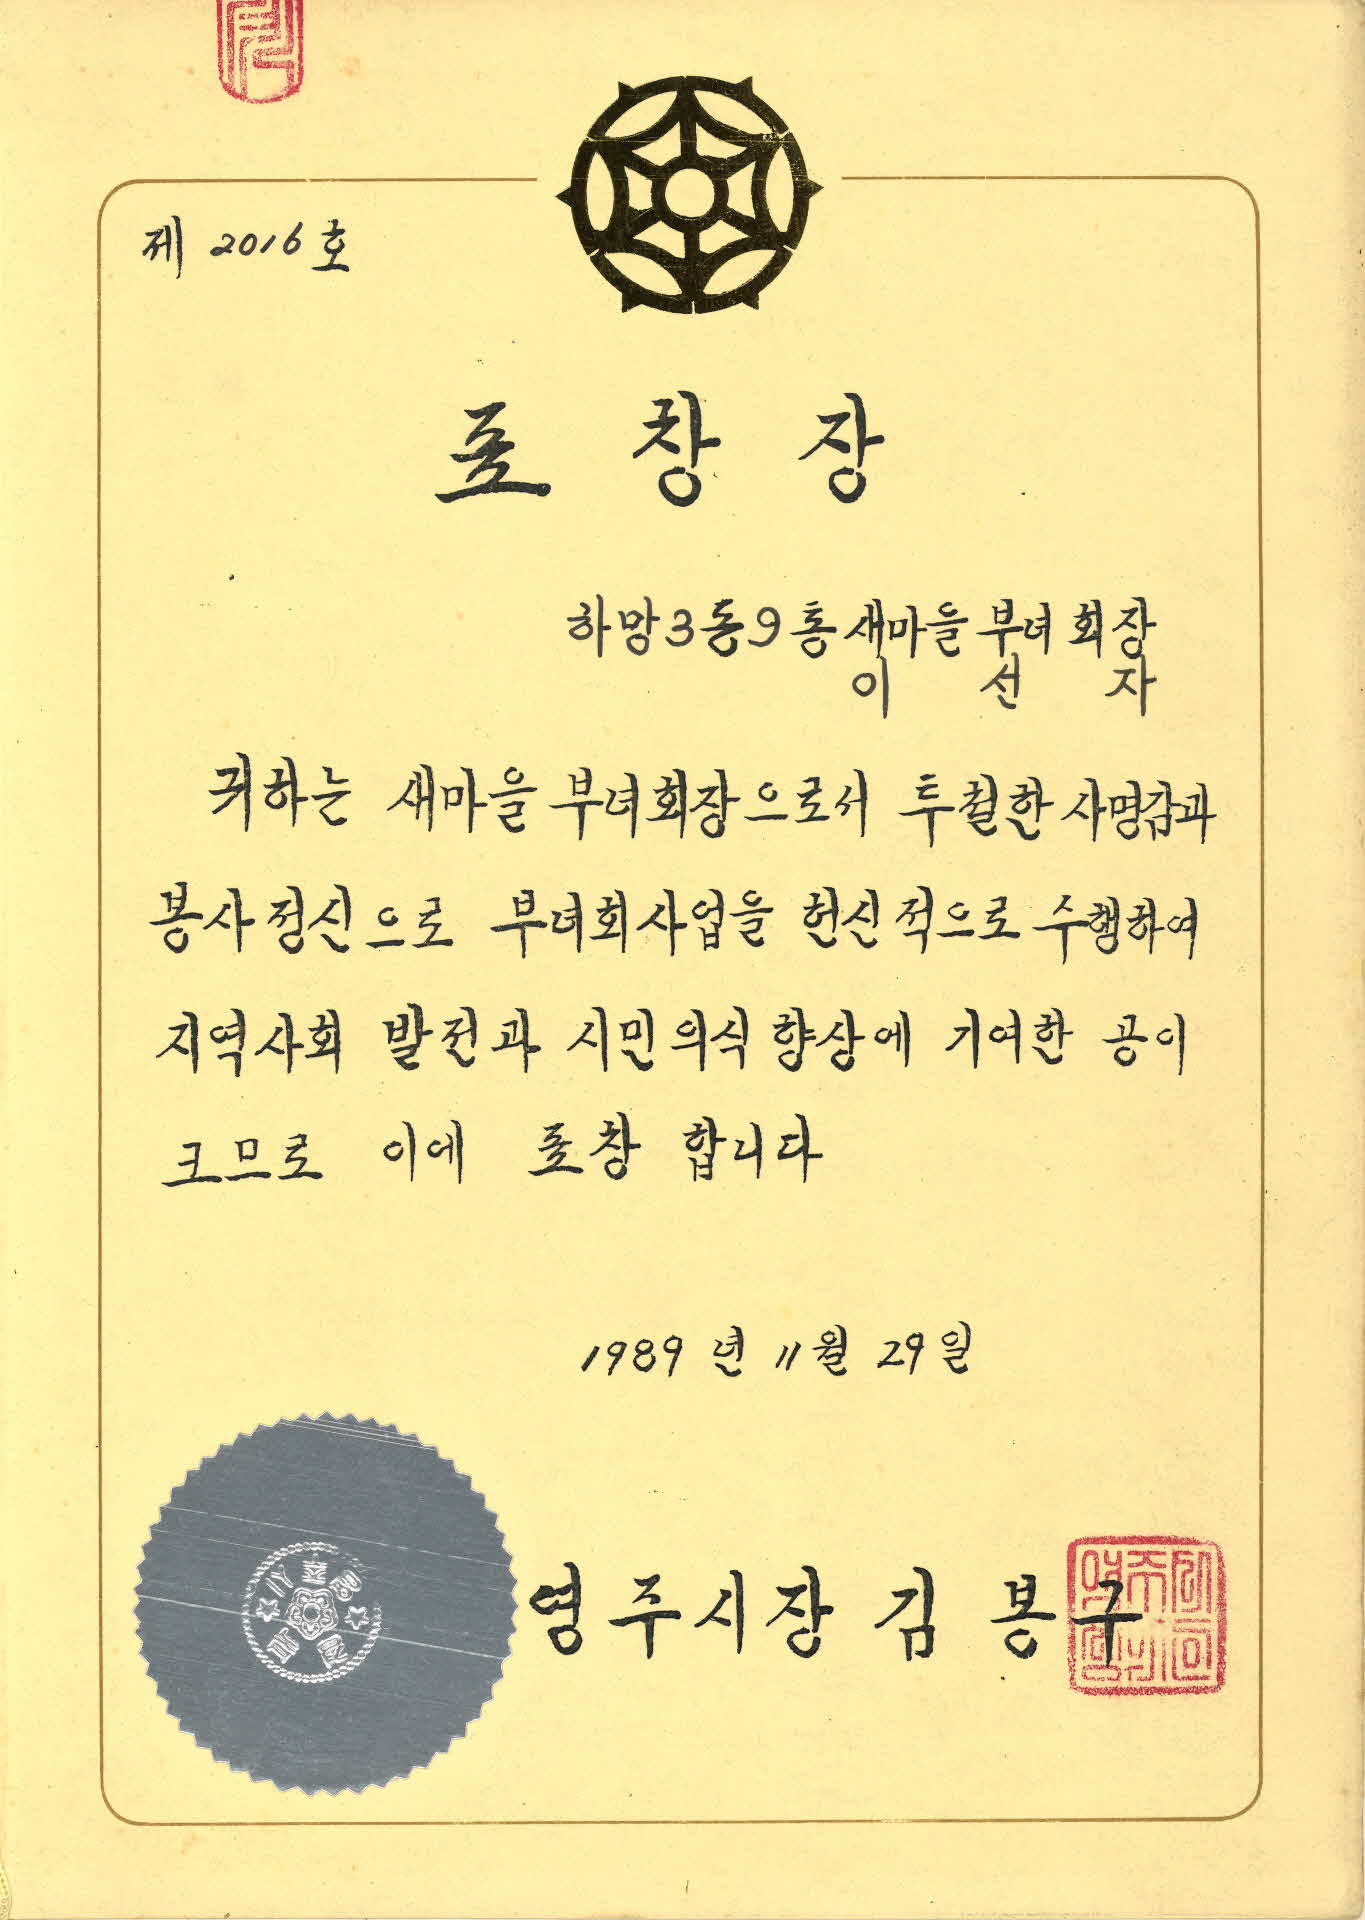 제 2016 호
표 창 장
하망3동9통 새마을 부녀회장
이 선 자
귀하는 새마을 부녀회장으로서 투철한 사명감과
봉사정신으로 부녀회사업을 헌신적으로 수행하여
지역사회 발전과 시민의식 향상에 기여한 공이
크므로 이에 표창 합니다
1989 년 11 월 29 일
영주시장 김 봉 구